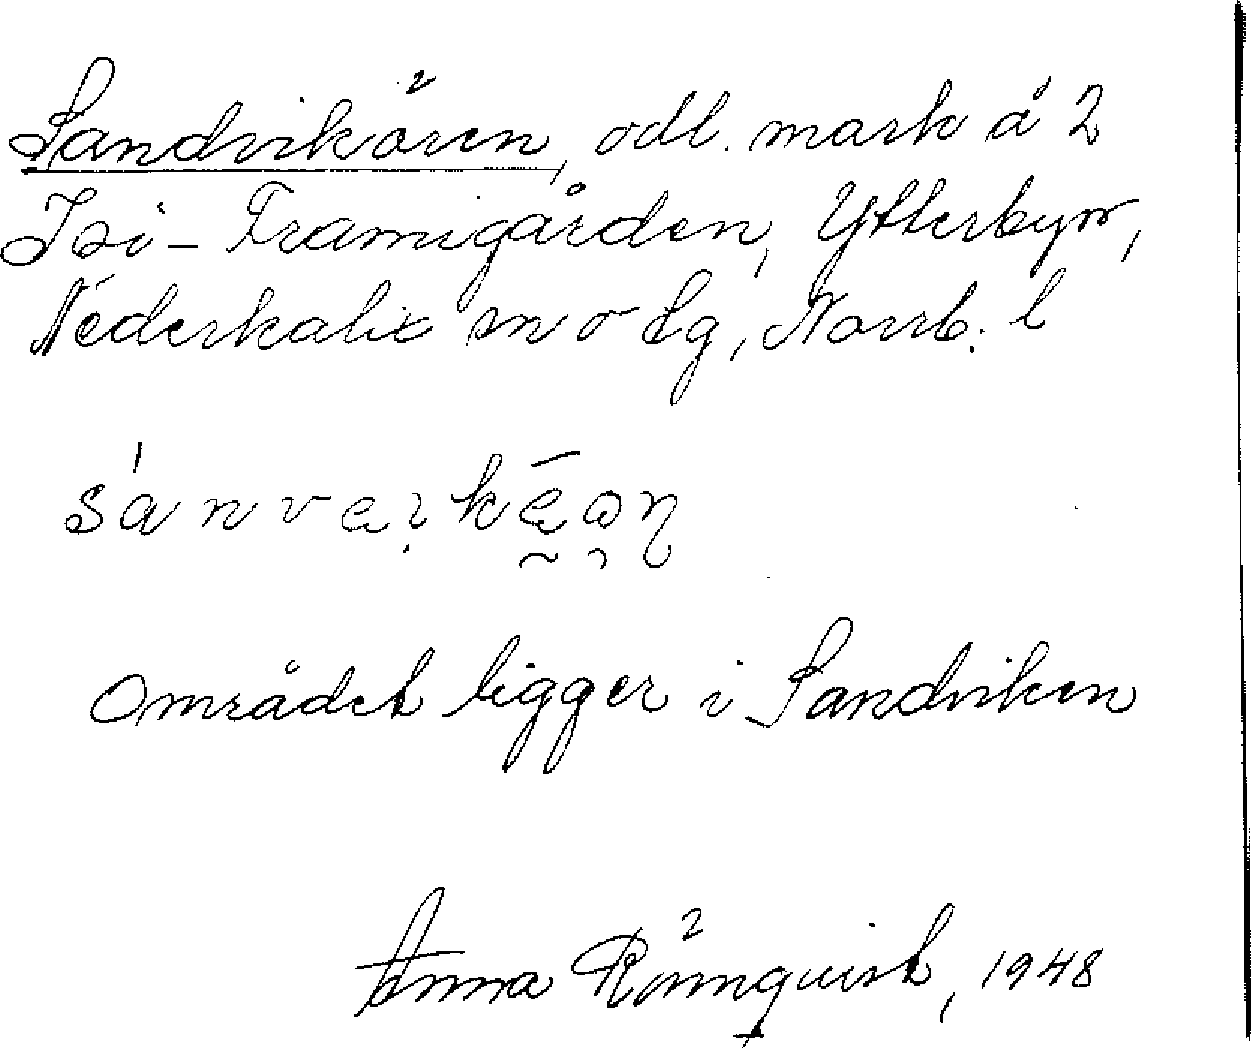 Sandvikören, odl. mark å 2
Isi-Framigården, Ytterbyn,
Nederkalix sn o lg, Norrb. l
Området ligger i Sandviken
Anna Rönnquist, 1948